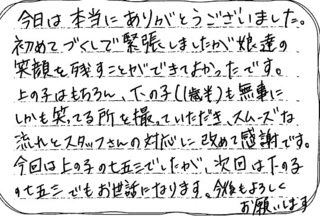 今日は本当にありがとうございました。
初めてづくしで緊張しましたが娘達の
笑顔を残すことができてよかったです。
上の子はもちろん、下の子(1歳半)も無事に
しかも笑ってる所を撮っていただき、スムーズな
流れとスタッフさんの対応に改めて感謝です。
今回は上の子の七五三でしたが、次回は下の子
の七五三でもお世話になります。今後もよろしく
お願いします